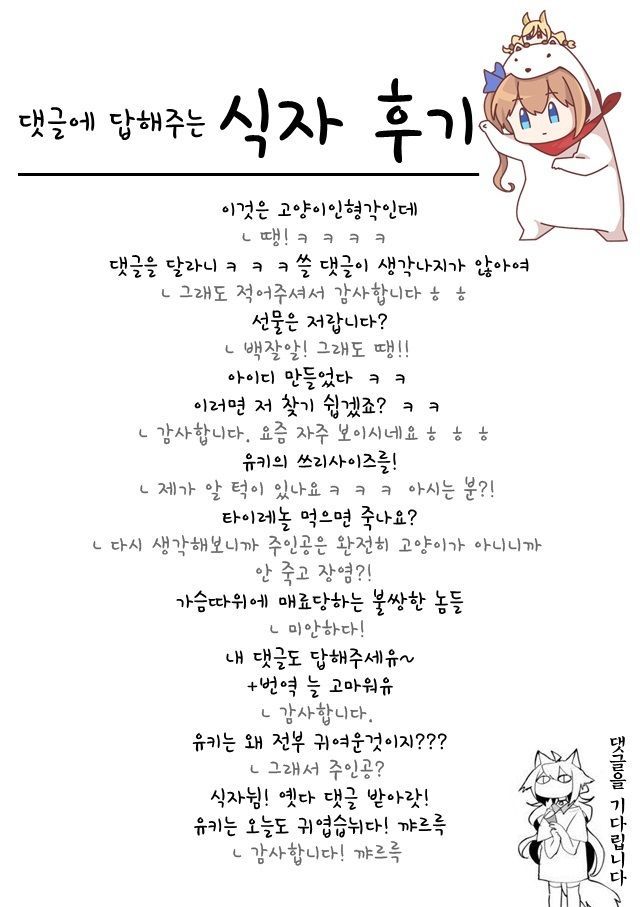 댓글에 답해주는 식자 후기
이것은 고양이인형각인데
ㄴ 땡! ㅋ ㅋ ㅋ ㅋ
댓글을 달라니 ㅋ ㅋ ㅋ 쓸 댓글이 생각나지가 않아여
ㄴ 그래도 적어주셔서 감사합니다 ㅎ ㅎ
선물은 저랍니다?
ㄴ 백잘알! 그래도 땡!!
아이디 만들었다 ㅋ ㅋ
이러면 저 찾기 쉽겠죠? ㅋ ㅋ
ㄴ 감사합니다. 요즘 자주 보이시네요 ㅎ ㅎ ㅎ
유키의 쓰리사이즈를!
ㄴ 제가 알 턱이 있나요 ㅋ ㅋ ㅋ 아시는 분?!
타이레놀 먹으면 죽나요?
ㄴ 다시 생각해보니까 주인공은 완전히 고양이가 아니니까
안 죽고 장염?!
가슴따위에 매료당하는 불쌍한 놈들
ㄴ 미안하다!
내 댓글도 답해주세유~
+번역 늘 고마워유
ㄴ 감사합니다.
유키는 왜 전부 귀여운것이지???
ㄴ 그래서 주인공?
식자뉨! 옛다 댓글 받아랏!
유키는 오늘도 귀엽습뉘다! 꺄르륵
ㄴ 감사합니다! 꺄르륵
댓글을 기다립니다